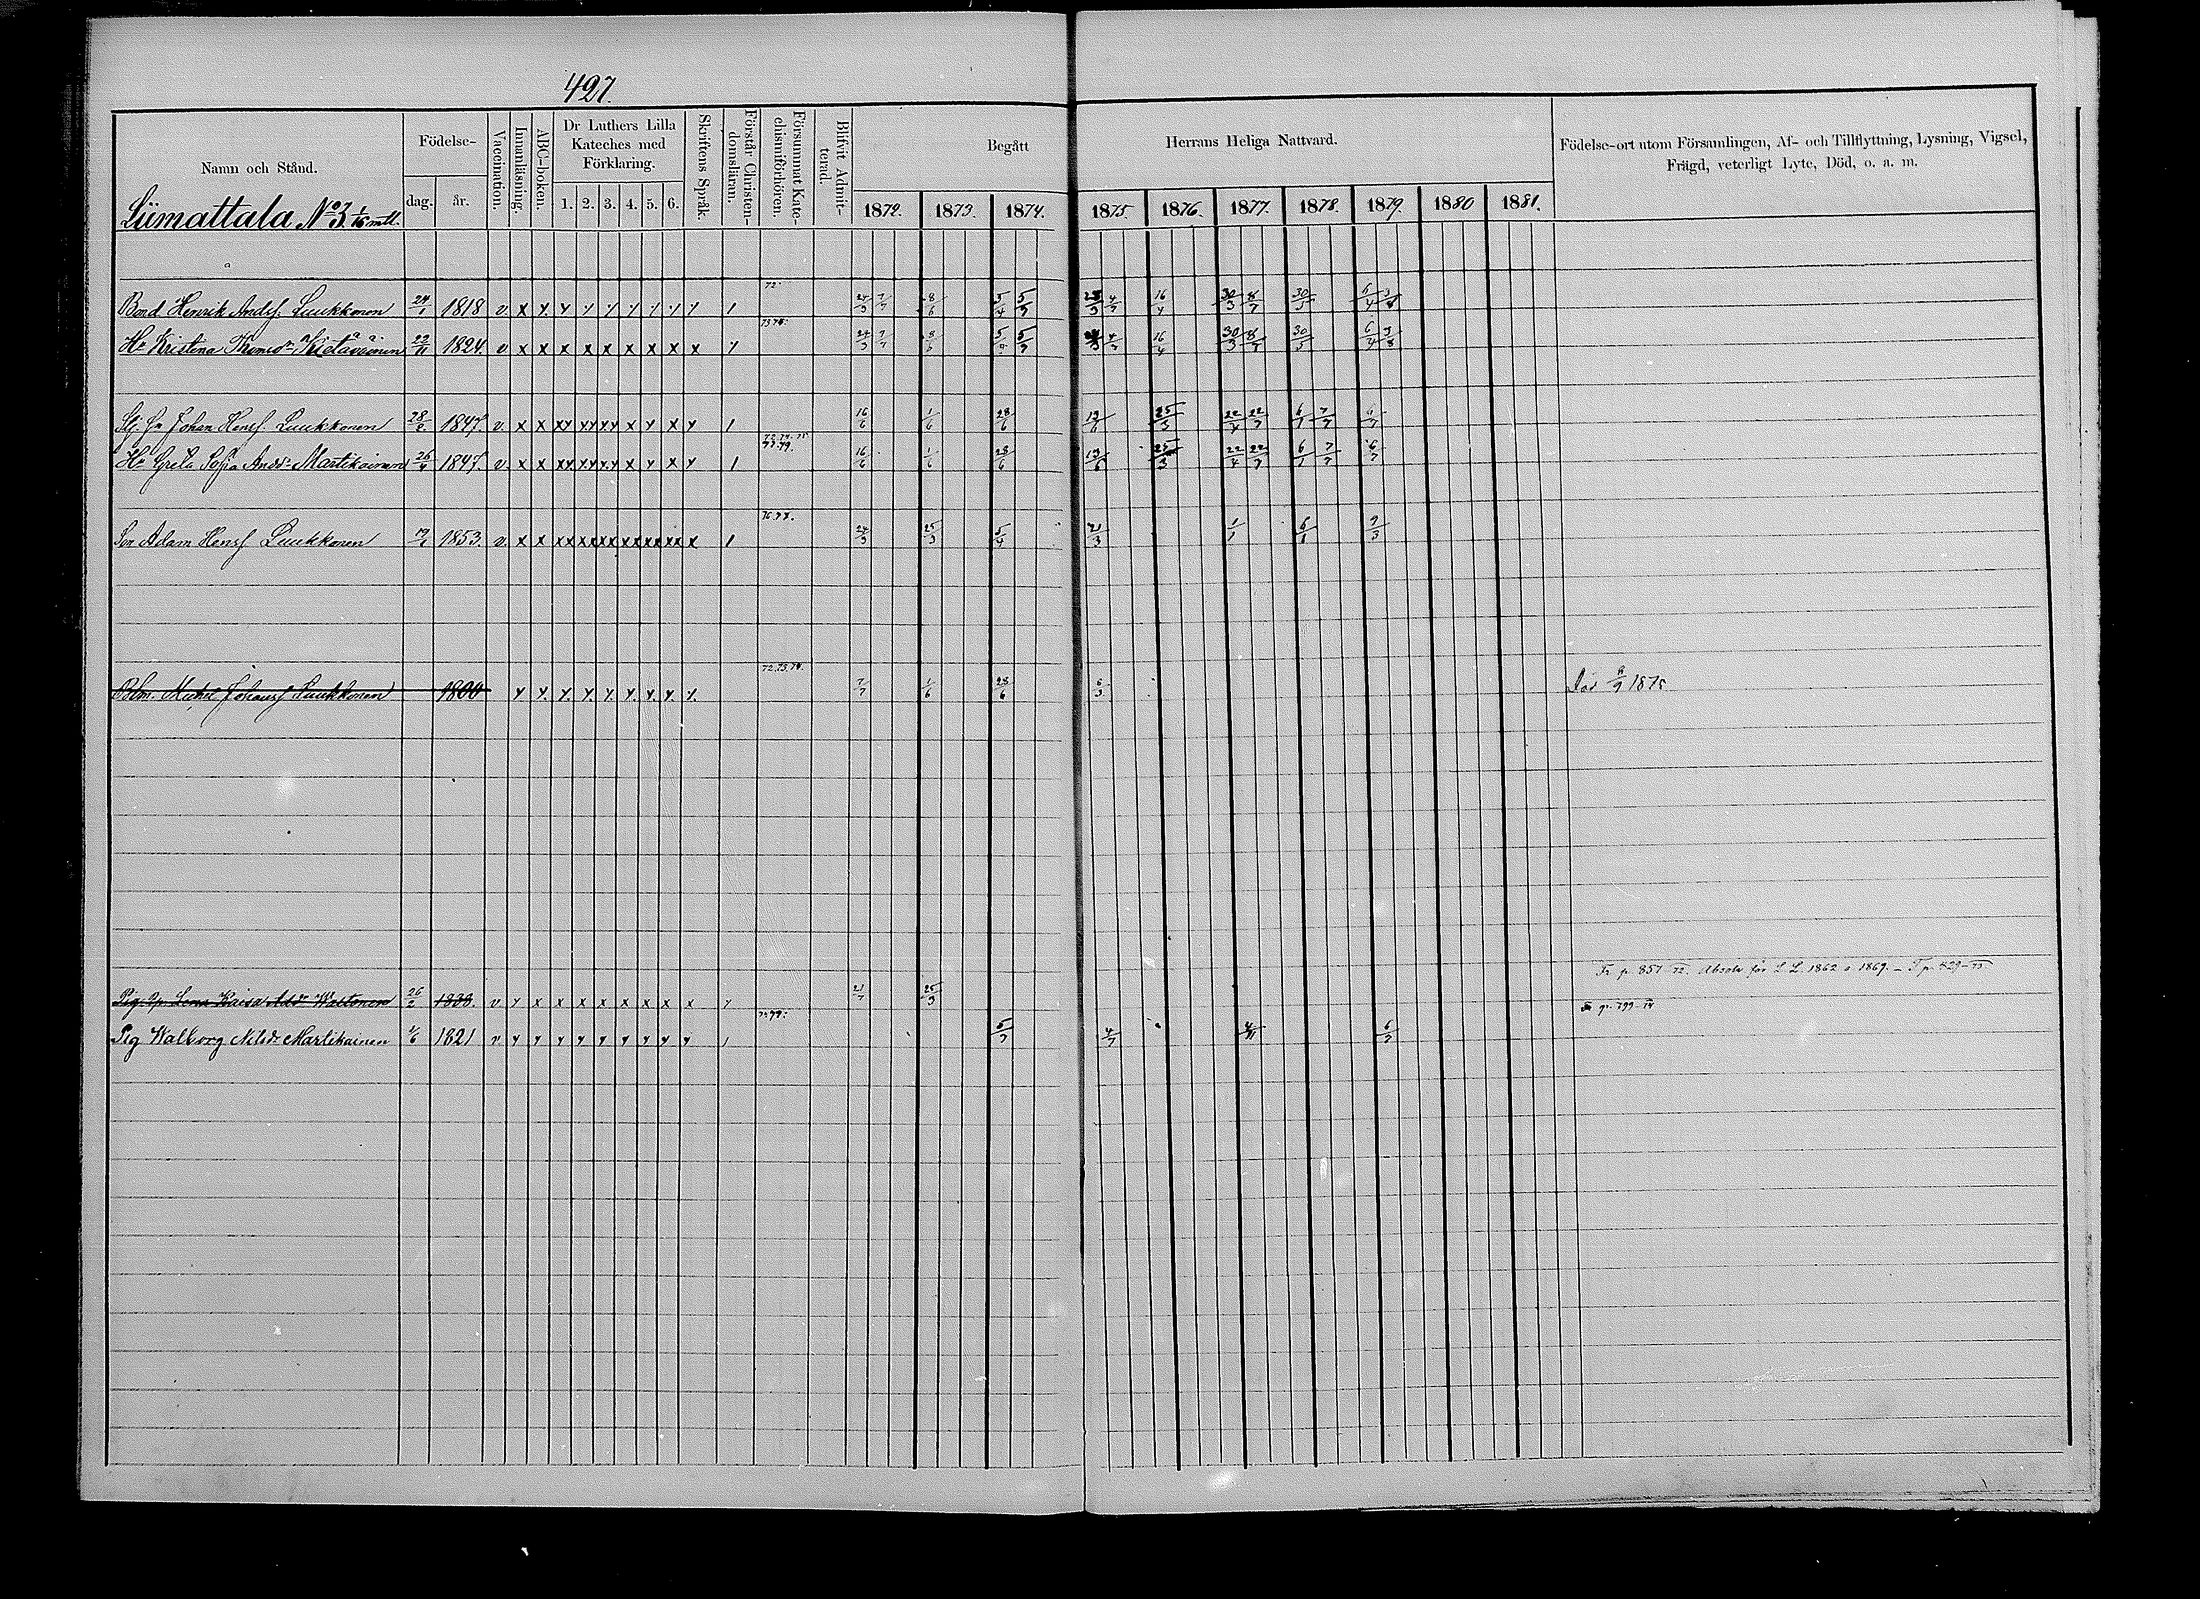 427.
Namn och Stånd.
Födelse-
dag.
år.
Vaccination.
Innanläsning.
ABC-boken.
Dr Luthers Lilla
Kateches med
Förklaring.
1. 2. 3. 4. 5. 6.
Skriftens Språk.
Förstår Christen-
domsläran.
Försummat Kate-
chismiförhören.
Blifvit Admit-
terad.
Begått Herrans Heliga Nattvard.
1872. 1873. 1874. 1875. 1876. 1877. 1878. 1879. 1880 1881.
Födelse-ort utom Församlingen, Af- och Tillflyttning, Lysning, Vigsel,
Frägd, veterligt Lyte, Död, o. a. m.
Liimattala No 3. 1/16 mtl.
72.
Bond Henrik Andsf. Luukkonen 24/1 1818 v x x. y y y y y y y / 24/3 7/7 8/6 5/4 5/7 4/7 16/4 30/3 8/7 30/5 6/4 3/8
73 74.
Hu Kristina Thomsdr 22/11 1824. v x x x x x x x x x y 24/3 7/7 8/6 5/7 4/7 16/4 30/3 8/7 30/5 6/4 3/8
Johan Hensf Luukkonen 28/2 1847. v x x xy xy xy x y x y / 16/6 1/6 28/6 13/6 25/3 22/4 22/7 6/1 7/7 6/7
Hu Greta Sofia Andsdr Martikainen 26/4 1847. v. x x xy xy xy x y x y / 16/6 1/6 28/6 13/6 25/3 22/4 22/7 6/1 7/7 6/7
Son Adam Hensf Luukkonen 1853. v. x x xx xx xx xx xx xx x / 24/3 25/3 5/4 21/3 1/1 6/1 9/3
72. 73. 74.
Michel Johansf Luukkonen 1800 y y y. y. y. y. y. y. y. 7/7 1/6 28/6 6/3 Död 1875
Fr p. 851-72. Absolv för L. L. 1862 o 1869. - T p. 429-73.
Pig. Lena Kaisa Adsdr 26/2 1838. v y x x x x x x x x y 21/7 25/3 gr. 799-74
Pig Walborg Nilsdr Martikainen 4/6 1821 v y y y y y y y y y / 5/7 4/7 4/11 6/7